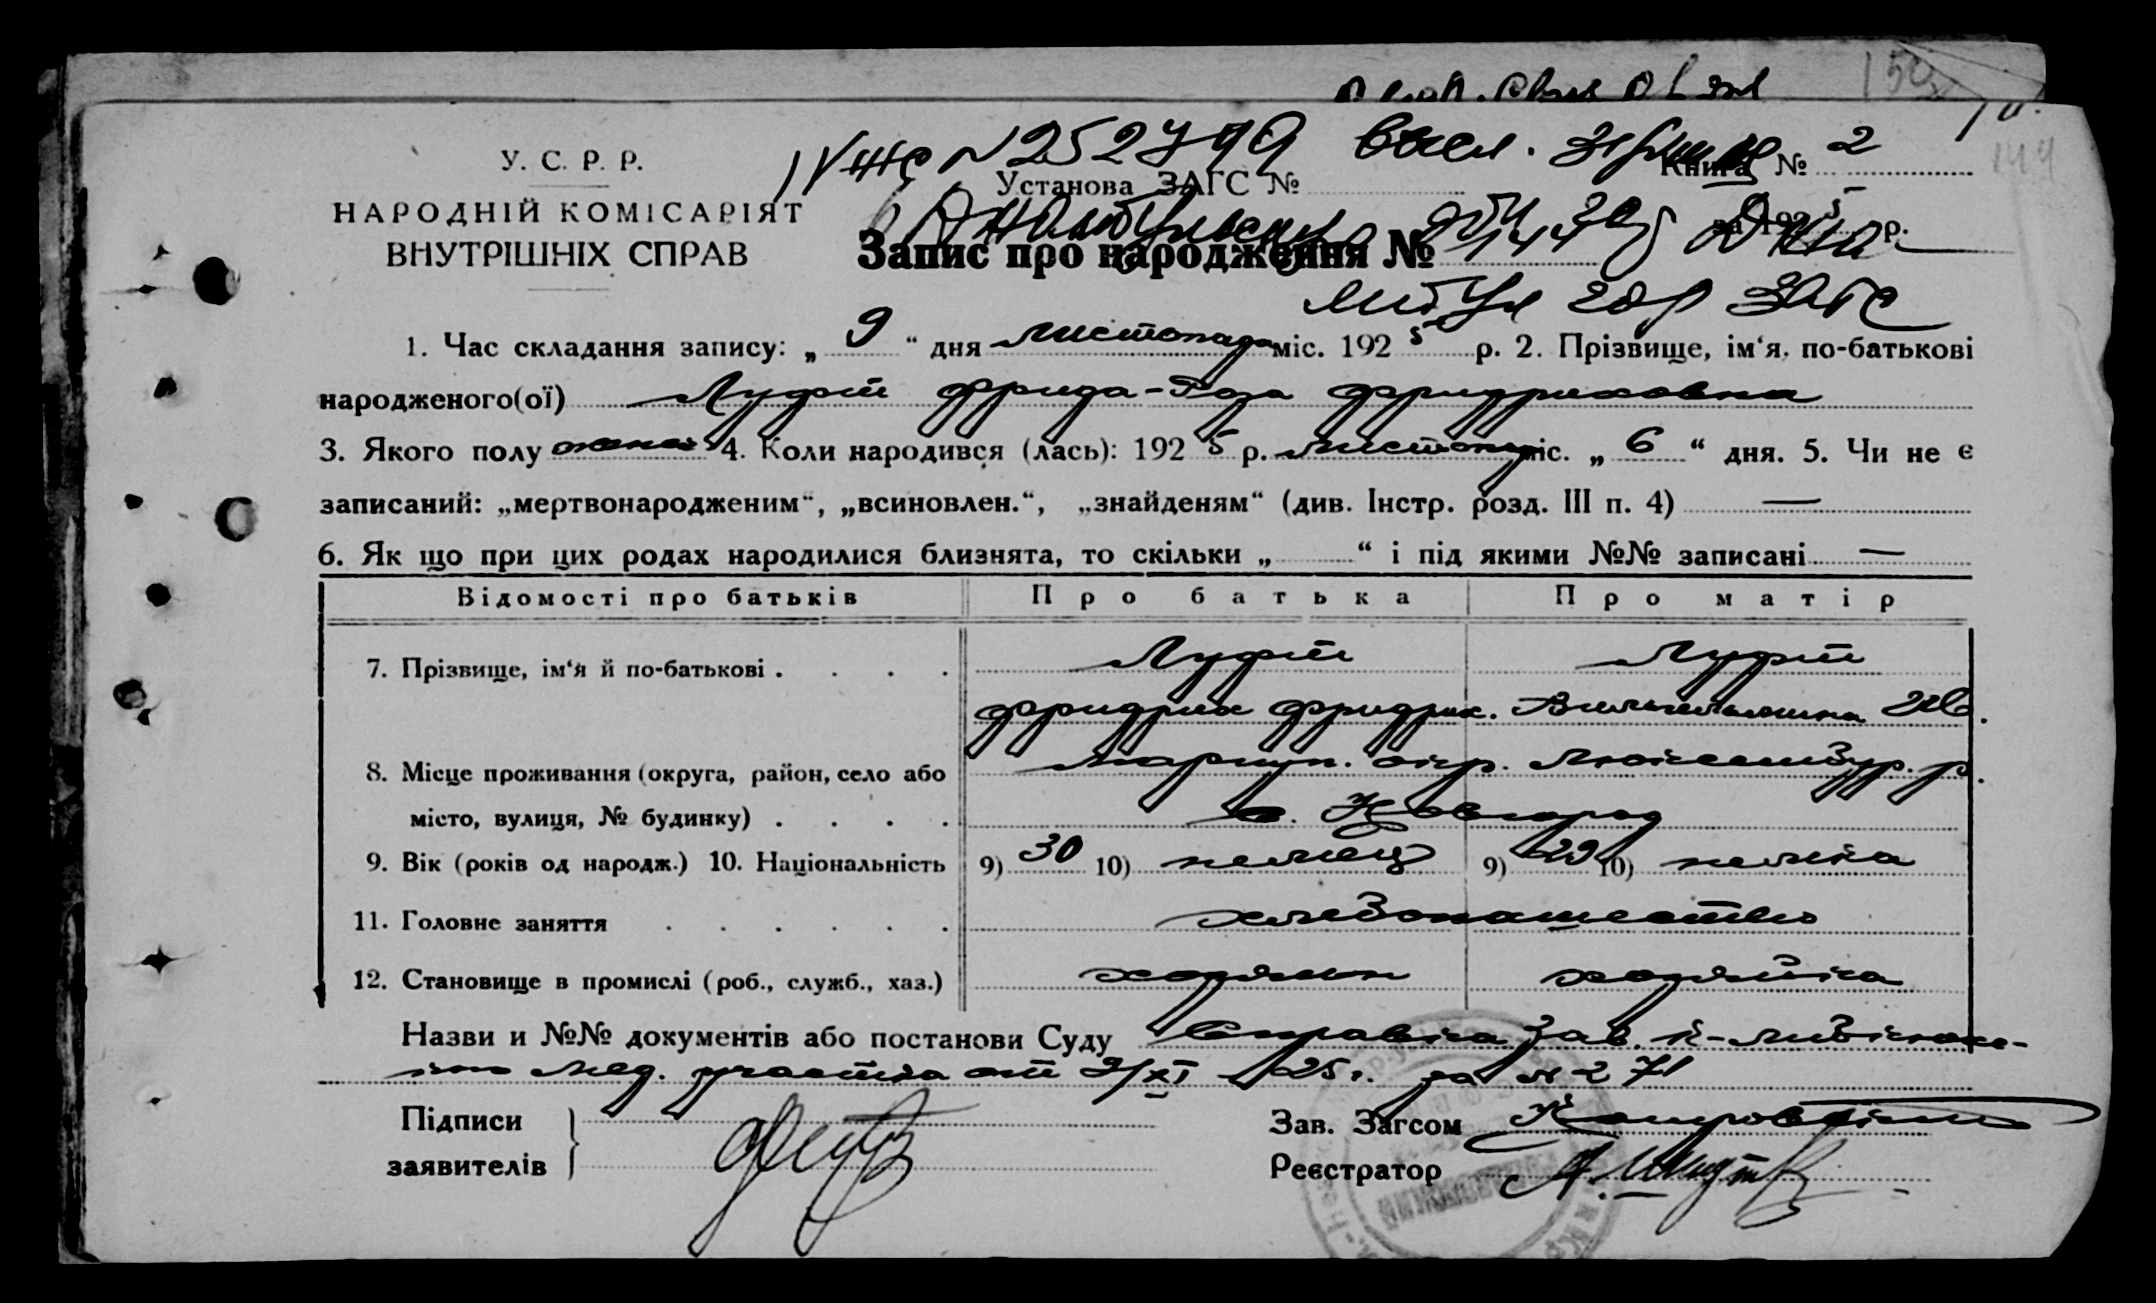 У. С. Р. Р.
НАРОДНІЙ КОМІСАРІЯТ
ВНУТРІШНІХ СПРАВ
N 252799
Установа ЗАГС №
Книга № 2
за 1925 р.
Запис про народження № 144
1. Час складання запису: „ 9 “ дня листопада міс. 1925 р. 2. Прізвище, ім‘я, по-батькові
народженого(ої) Луфт Фрида-Роза Фридриховна
3. Якого полу 4. Коли народився (лась): 1925 р. листопад міс. „ 6 “ дня. 5. Чи не є
записаний: „мертвонародженим“, „всиновлен.“, „знайденям“ (див. Інстр. розд. III п. 4) —
6. Як що при цих родах народилися близнята, то скільки „ “ і під якими №№ записані —
Відомості про батьків Про батька Про матір
7. Прізвище, ім‘я й по-батькові . . . . Луфт Луфт
Фридрих Фридрих. Вильгельмина
8. Місце проживання (округа, район, село або Мариуп. окр. Люксембур. р.
місто, вулиця, № будинку) . . . . с. Новгород
9. Вік (років од народж.) 10. Національність 9) 30 10) немец 9) 29 10) немка
11. Головне заняття . . . . . . хлебопашество
12. Становище в промислі (роб., служб., хаз.) хозяин хозяйка
Назви и №№ документів або постанови Суду Справка Зав.
мед. участка от 9/XI 25 г. за № 271
Підписи
заявителів
Зав. Загсом
Реєстратор